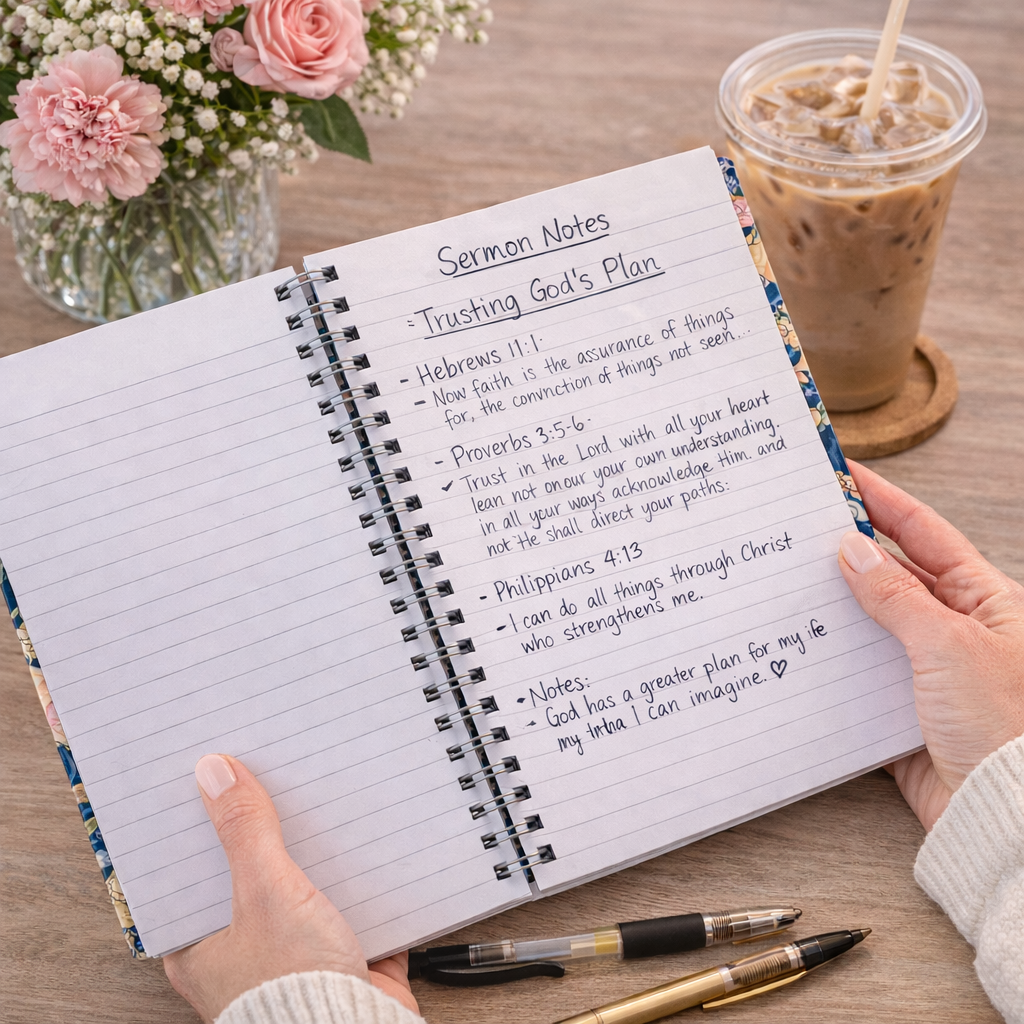 Sermon Notes
Trusting God's Plan
- Hebrews 11:1.
- Now faith is the assurance of things
for, the convnction of things not seen...
- Proverbs 3:5-6.
✓ Trust in the Lord with all your heart
lean not on our your own understanding.
in all your ways acknowledge Him. and
not He shall direct your paths:
- Philippians 4:13
- I can do all things through Christ
who strengthens me.
- Notes:
- God has a greater plan for my ife
my I can imagine. ♡